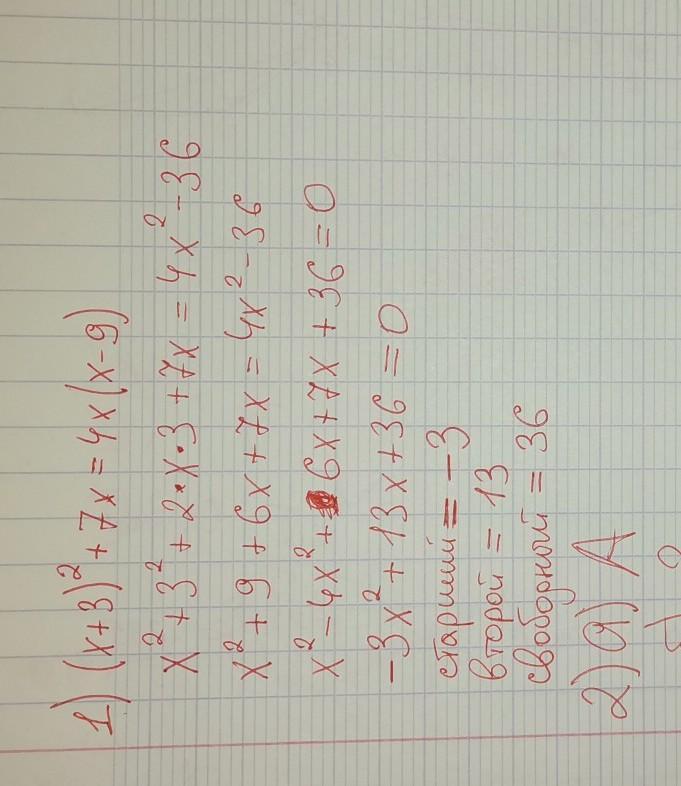 1) (x+3)² + 7x = 4x(x-9)
x² + 3² + 2•x•3 + 7x = 4x² - 36
x² + 9 + 6x + 7x = 4x² - 36
x² - 4x² + 6x + 7x + 36 = 0
-3x² + 13x + 36 = 0
старший = -3
второй = 13
свободный = 36
2) а) А